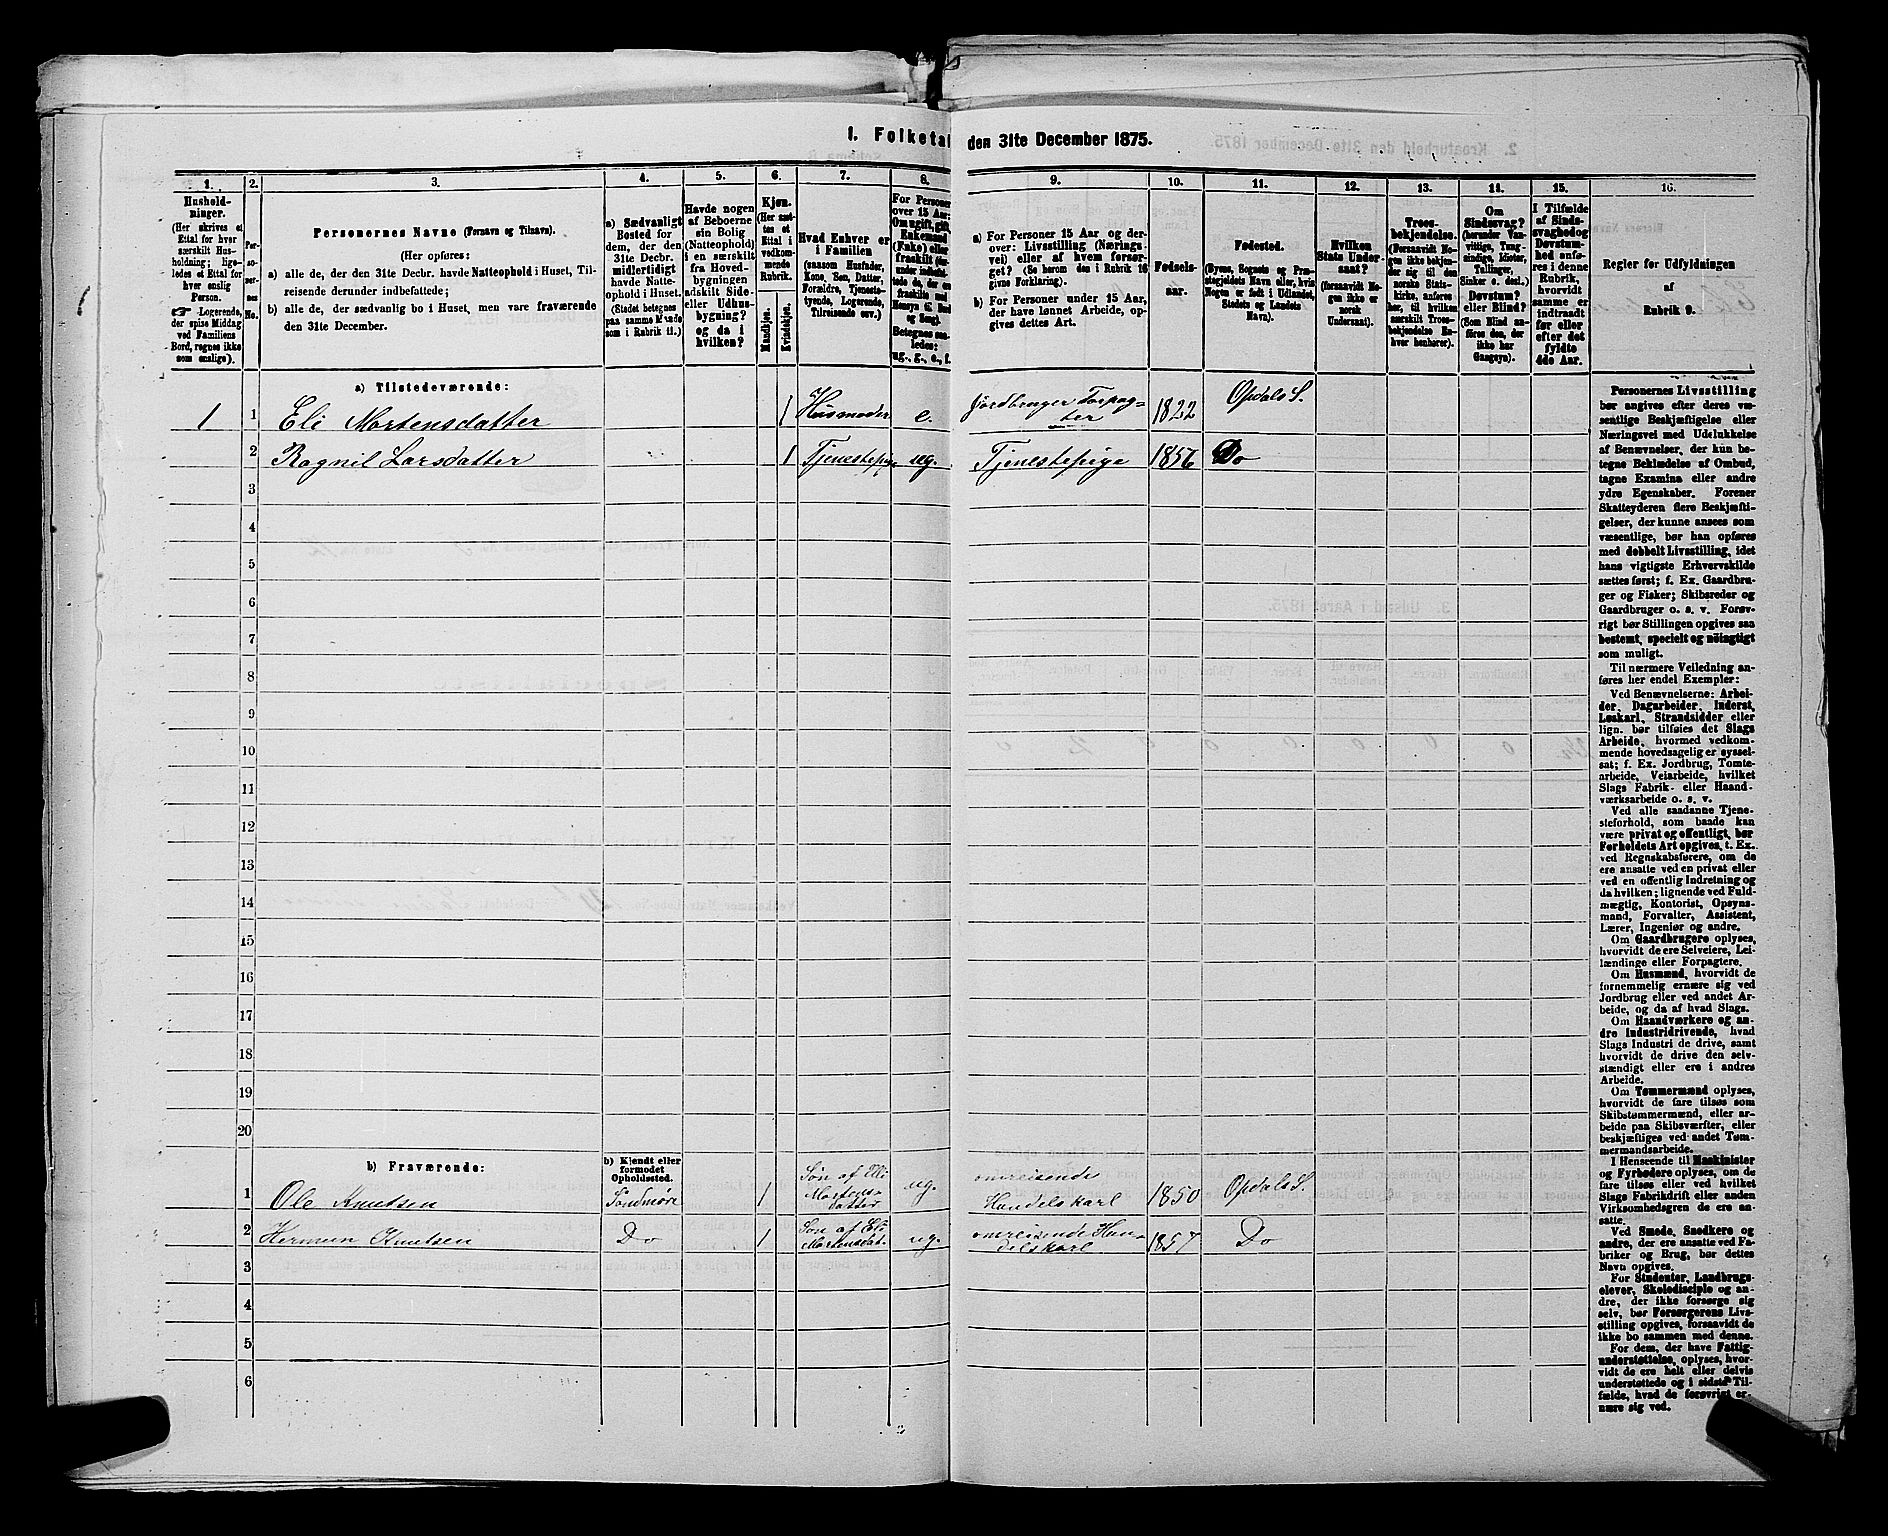 1. Folketal den 31te December 1875.
1. 2. 3. 4. 5. 6. 7. 8. 9. 10. 11. 12. 13. 14. 15. 16.
Hushold-
ninger.
(Her skrives et
Ettal for hver
særskilt Hus-
holdning; lige-
ledes et Ettal for
hver enslig
Person.
☞ Logerende,
der spise Middag
ved Familiens
Bord, regnes ikke
som enslige).
Per-
so-
ner-
nes
No.
Personernes Navne (Fornavn og Tilnavn).
(Her opføres:
a) alle de, der den 31te Decbr. havde Natteophold i Huset, Til-
reisende derunder indbefattede;
b) alle de, der sædvanlig bo i Huset, men vare fraværende
den 31te December.
a) Sædvanligt
Bosted for
dem, der den
31te Decbr.
midlertidigt
havde Natte-
ophold i Huset.
(Stedet betegnes
paa samme Maade
som i Rubrik 11.)
Havde nogen
af Beboerne
sin Bolig
(Natteophold)
i en særskilt
fra Hoved-
bygningen
adskilt Side-
eller Udhus-
bygning?
og da i
hvilken?
Kjøn.
(Her sæt-
tes et
Ettal i
vedkom-
mende
Rubrik.
Mandkjøn.
Kvindekjøn.
Hvad Enhver er
i Familien
(saasom Husfader,
Kone, Søn, Datter,
Forældre, Tjeneste-
tyende, Logerende,
Tilreisende osv.)
For Personer
over 15 Aar:
Om ugift, gift,
Enkemand
(Enke) eller
fraskilt
Betegnes saa-
ledes:
ug., g., e., f.
a) For Personer 15 Aar og der-
over: Livsstilling (Nærings-
vei) eller af hvem forsør-
get? (Se herom den i Rubrik 16
givne Forklaring).
b) For Personer under 15 Aar,
der have lønnet Arbeide, op-
gives dettes Art.
Fødsels-
aar.
Fødested.
(Byens, Sognets og Præ-
stegjeldets Navn eller, hvis
Nogen er født i Udlandet,
Stedets og Landets
Navn).
Hvilken
Stats Under-
saat?
(forsaavidt No-
gen ikke er
norsk
Undersaat).
Troes-
bekjendelse.
(Forsaavidt No-
gen ikke bekjen-
der sig til den
norske Stats-
kirke, anføres
her, til hvilken
særskilt Troes-
bekjendelse En-
hver henhører).
Om
Sindssvag?
(herunder Van-
vittige, Tung-
sindige, Idioter,
Tullinger,
Sinker o. desl.)
Døvstum?
eller Blind?
(Som Blind an-
føres den, der
ikke har
Gangsyn).
I Tilfælde
af Sinds-
svaghed og
Døvstum-
hed anfø-
res i denne
Rubrik,
hvorvidt
samme er
indtraadt
før eller
efter det
fyldte
4de Aar.
Regler for Udfyldningen
af
Rubrik 9.
a) Tilstedeværende:
1 1 Eli Mortensdatter 1 Husmoder e. Jordbruger Forpag-
ter 1822 Opdals S.
2 Ragnil Larsdatter 1 Tjenestepige ug. Tjenestepige 1856 Do
3
4
5
6
7
8
9
10
11
12
13
14
15
16
17
18
19
20
b) Fraværende:
b) Kjendt eller
formodet
Opholdssted.
1 Ole Knutsen Søndmøre 1 Søn af Elli
Mortens-
datter ug. omreisende
Handelskarl 1850 Opdals S.
2 Herman Knutsen Do 1 Søn af Eli
Mortensdat. ug. omreisende Han-
delskarl 1857 Do
3
4
5
6
Personernes Livsstilling
bør angives efter deres væ-
sentlige Beskjæftigelse eller
Næringsvei med Udelukkelse
af Benævnelser, der kun be-
tegne Beklædelse af Ombud,
tagne Examina eller andre
ydre Egenskaber. Forener
Skatteyderen flere Beskjæfti-
gelser, der kunne ansees som
væsentlige, bør han opføres
med dobbelt Livsstilling, idet
hans vigtigste Erhvervskilde
sættes først; f. Ex. Gaardbru-
ger og Fisker; Skibsreder og
Gaardbruger o. s. v. Forøv-
rigt bør Stillingen opgives saa
bestemt, specielt og nøiagtigt
som muligt.
Til nærmere Veiledning an-
føres her endel Exempler:
Ved Benævnelserne: Arbei-
der, Dagarbeider, Inderst,
Løskarl, Strandsidder eller
lign. bør tilføies det Slags
Arbeide, hvormed vedkom-
mende hovedsagelig er syssel-
sat; f. Ex. Jordbrug, Tomte-
arbeide, Veiarbeide, hvilket
Slags Fabrik- eller Haand-
værksarbeide o. s. v.
Ved alle saadanne Tjene-
steforhold, som baade kan
være privat og offentligt, bør
Forholdets Art opgives, f. Ex.
ved Regnskabsførere, om de
ere ansatte ved en privat eller
ved en offentlig Indretning og
da hvilken; lignende ved Fuld-
mægtig, Kontorist, Opsyns-
mand, Forvalter, Assistent,
Lærer, Ingeniør og andre.
Om Gaardbrugere oplyses,
hvorvidt de ere Selveiere, Lei-
lændinge eller Forpagtere.
Om Husmænd, hvorvidt de
fornemmelig ernære sig ved
Jordbrug eller ved andet Ar-
beide, og da af hvad Slags.
Om Haandværkere og an-
dre Industridrivende, hvad
Slags Industri de drive, samt
hvorvidt de drive den selv-
stændigt eller ere i andres
Arbeide.
Om Tømmermænd oplyses,
hvorvidt de fare tilsøs som
Skibstømmermænd, eller ar-
beide paa Skibsværfter, eller
beskjæftiges ved andet Tøm-
mermandsarbeide.
I Henseende til Maskinister
og Fyrbødere oplyses, om de
fare tilsøs eller ved hvilket
Slags Fabrikdrift eller anden
Virksomhedsgren de ere an-
satte.
Ved Smede, Snedkere og
andre, der ere ansatte ved Fa-
briker og Brug, bør dettes
Navn opgives.
For Studenter, Landbrugs-
elever, Skoledisciple og an-
dre, der ikke forsørge sig
selv, bør Forsørgerens Livs-
stilling opgives, forsaavidt de
ikke bo sammen med denne.
For dem, der have Fattig-
understøttelse, oplyses, hvor-
vidt de ere helt eller delvis
understøttede og i sidste Til-
fælde, hvad de forøvrigt er-
nære sig ved.